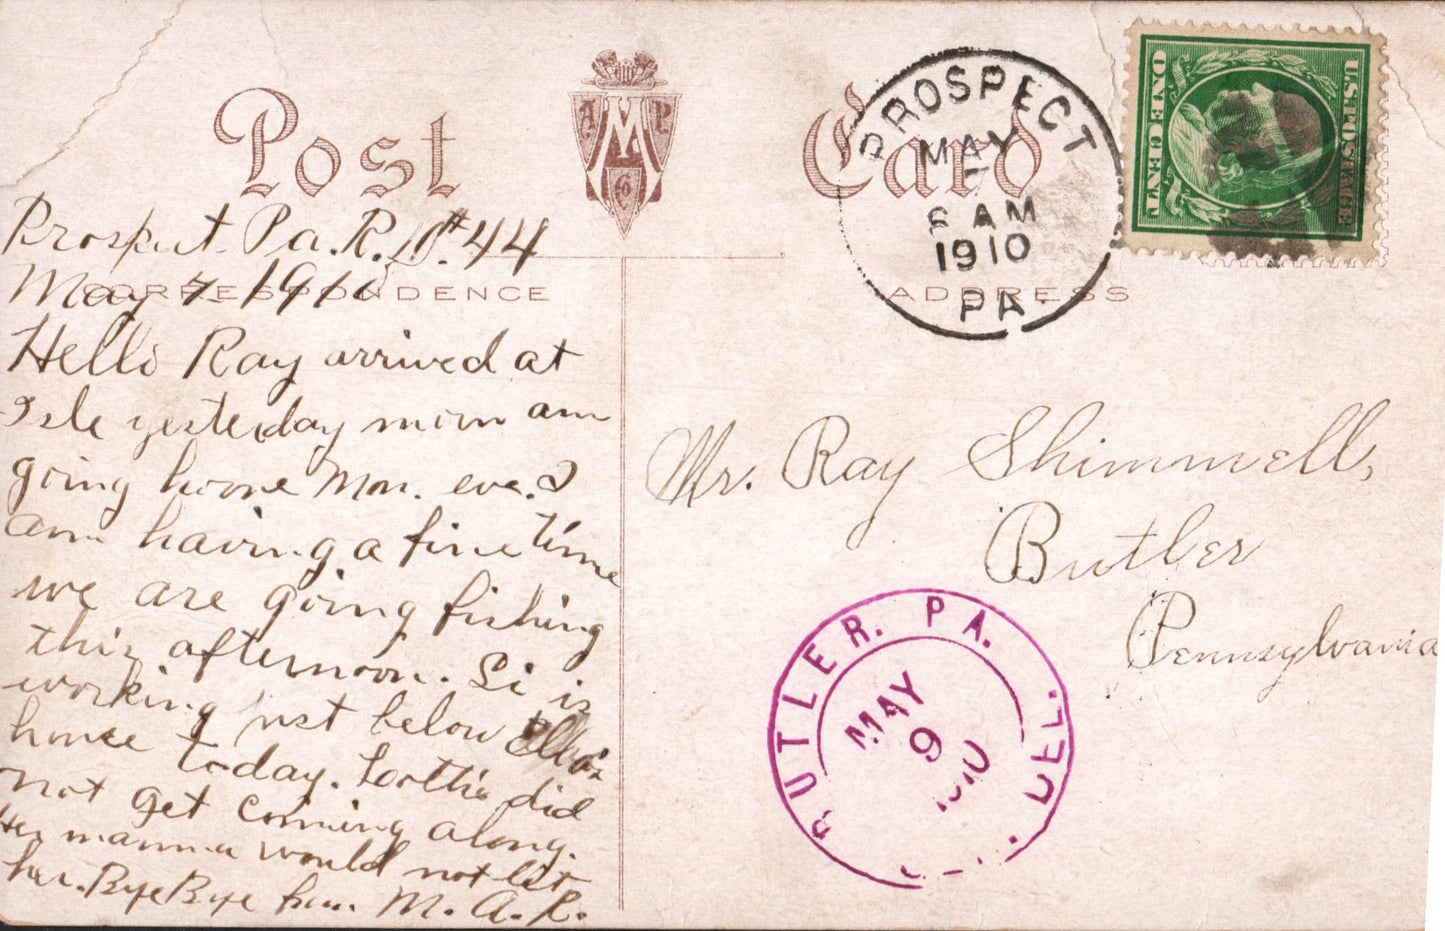 Post Card
A M P Co
CORRESPONDENCE
ADDRESS
PROSPECT
MAY
7
6 AM
1910
PA.
U.S. POSTAGE
ONE CENT
Prospect Pa. R.D.#44
May 7 1910
Hello Ray arrived at
Isle yesterday morn am
going home Mon. eve. I
am having a fine time
we are going fishing
this afternoon. Si is
working just below
house today. Lottie did
not get coming along.
Her mamma would not let
her. Bye Bye from M. A. R.
Mr. Ray Shimmell,
Butler
Pennsylvania
BUTLER. PA.
MAY
9
1910
DEL.